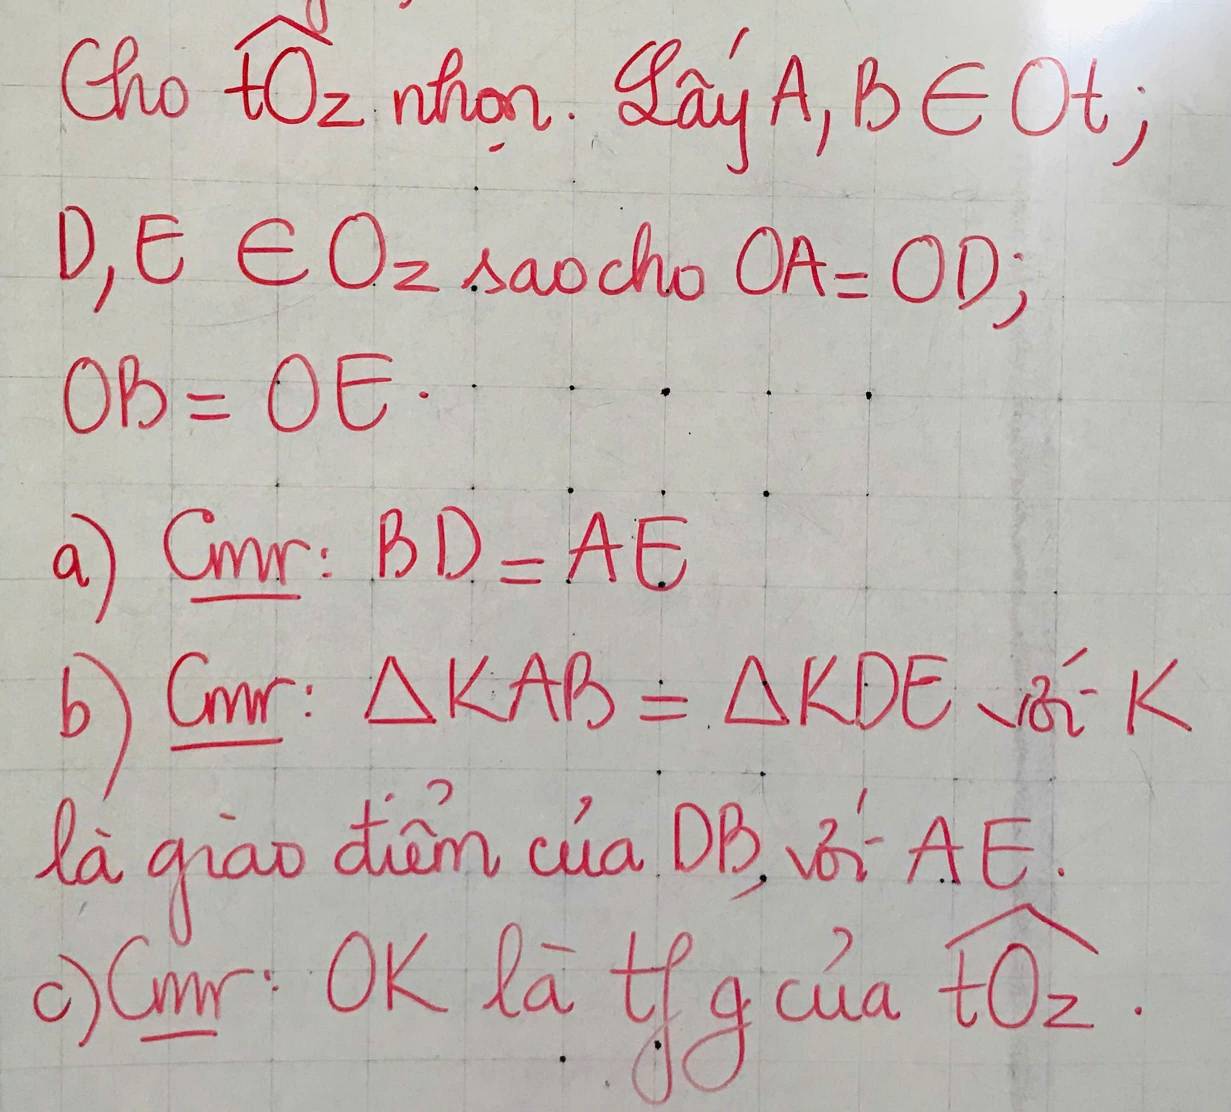 Cho tOz nhọn. Lấy A, B ∈ Ot;
D, E ∈ Oz sao cho OA = OD;
OB = OE.
a) Cmr: BD = AE
b) Cmr: △KAB = △KDE với K
là giao điểm của DB, với AE.
c) Cmr: OK là tfg của tOz.